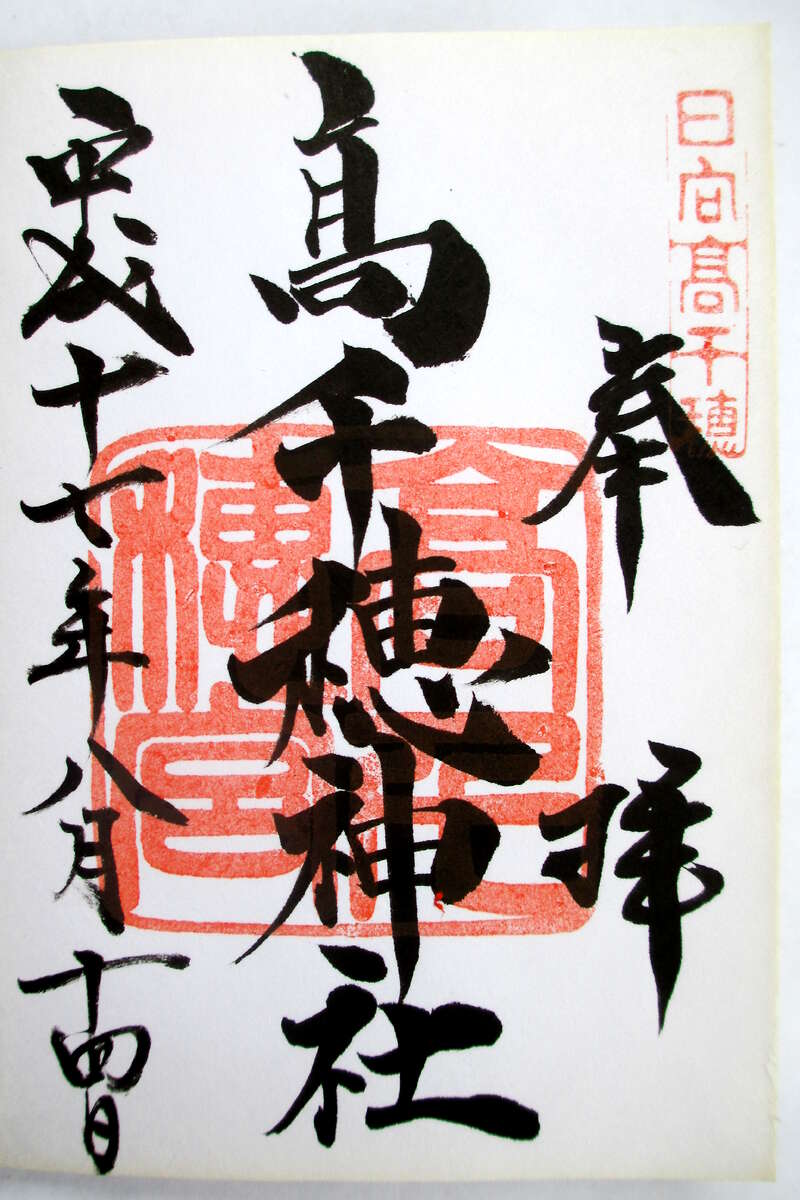 日向高千穂
奉拝
高千穂神社
高千穂宮
平成十七年八月十四日